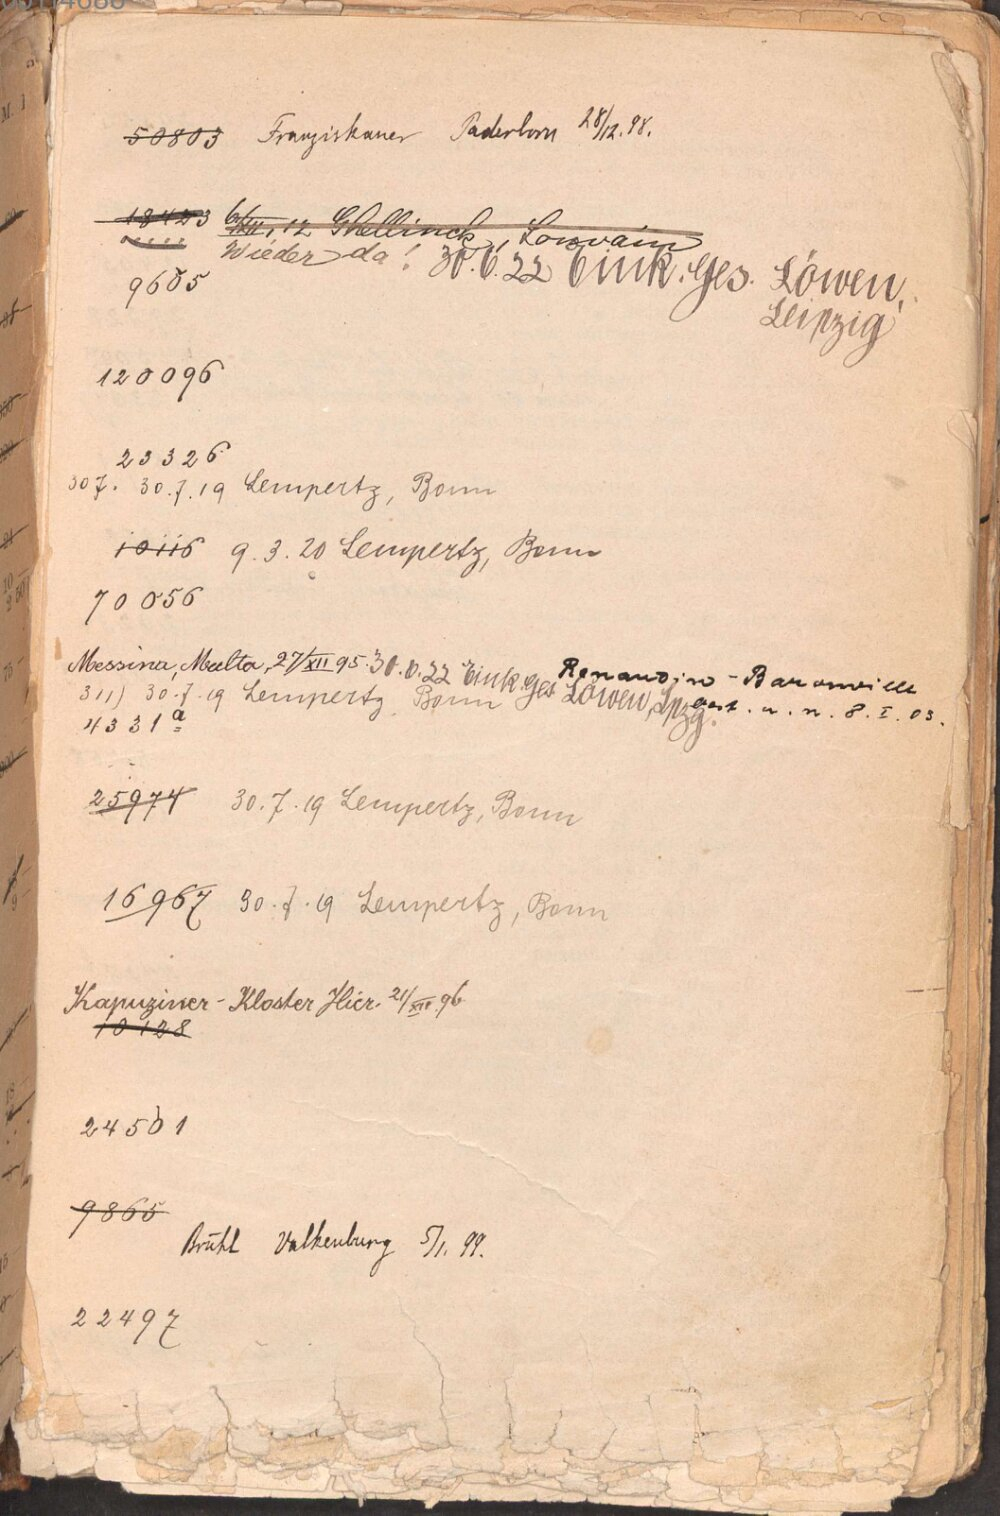 50803 Franziskaner Paderborn 28/12.98.
18423 6/XII.12 Ghellinck, Louvain
Wieder da! 30.6.22 Eink. Ges. Löwen,
Leipzig
9605
120096
23326
307. 30.7.19 Lempertz, Bonn
10116 9.3.20 Lempertz, Bonn
70056
Messina, Malta, 27/XII 95. 30.6.22 Eink. Ges Löwen, Lpzg.
311) 30.7.19 Lempertz Bonn
gest. u. n. 8.I.03.
4331a
25974 30.7.19 Lempertz, Bonn
16967 30.7.19 Lempertz, Bonn
Kapuziner-Kloster Hier 21/XII.96
10128
24501
9865
Brühl Valkenburg 5/1.99.
22497